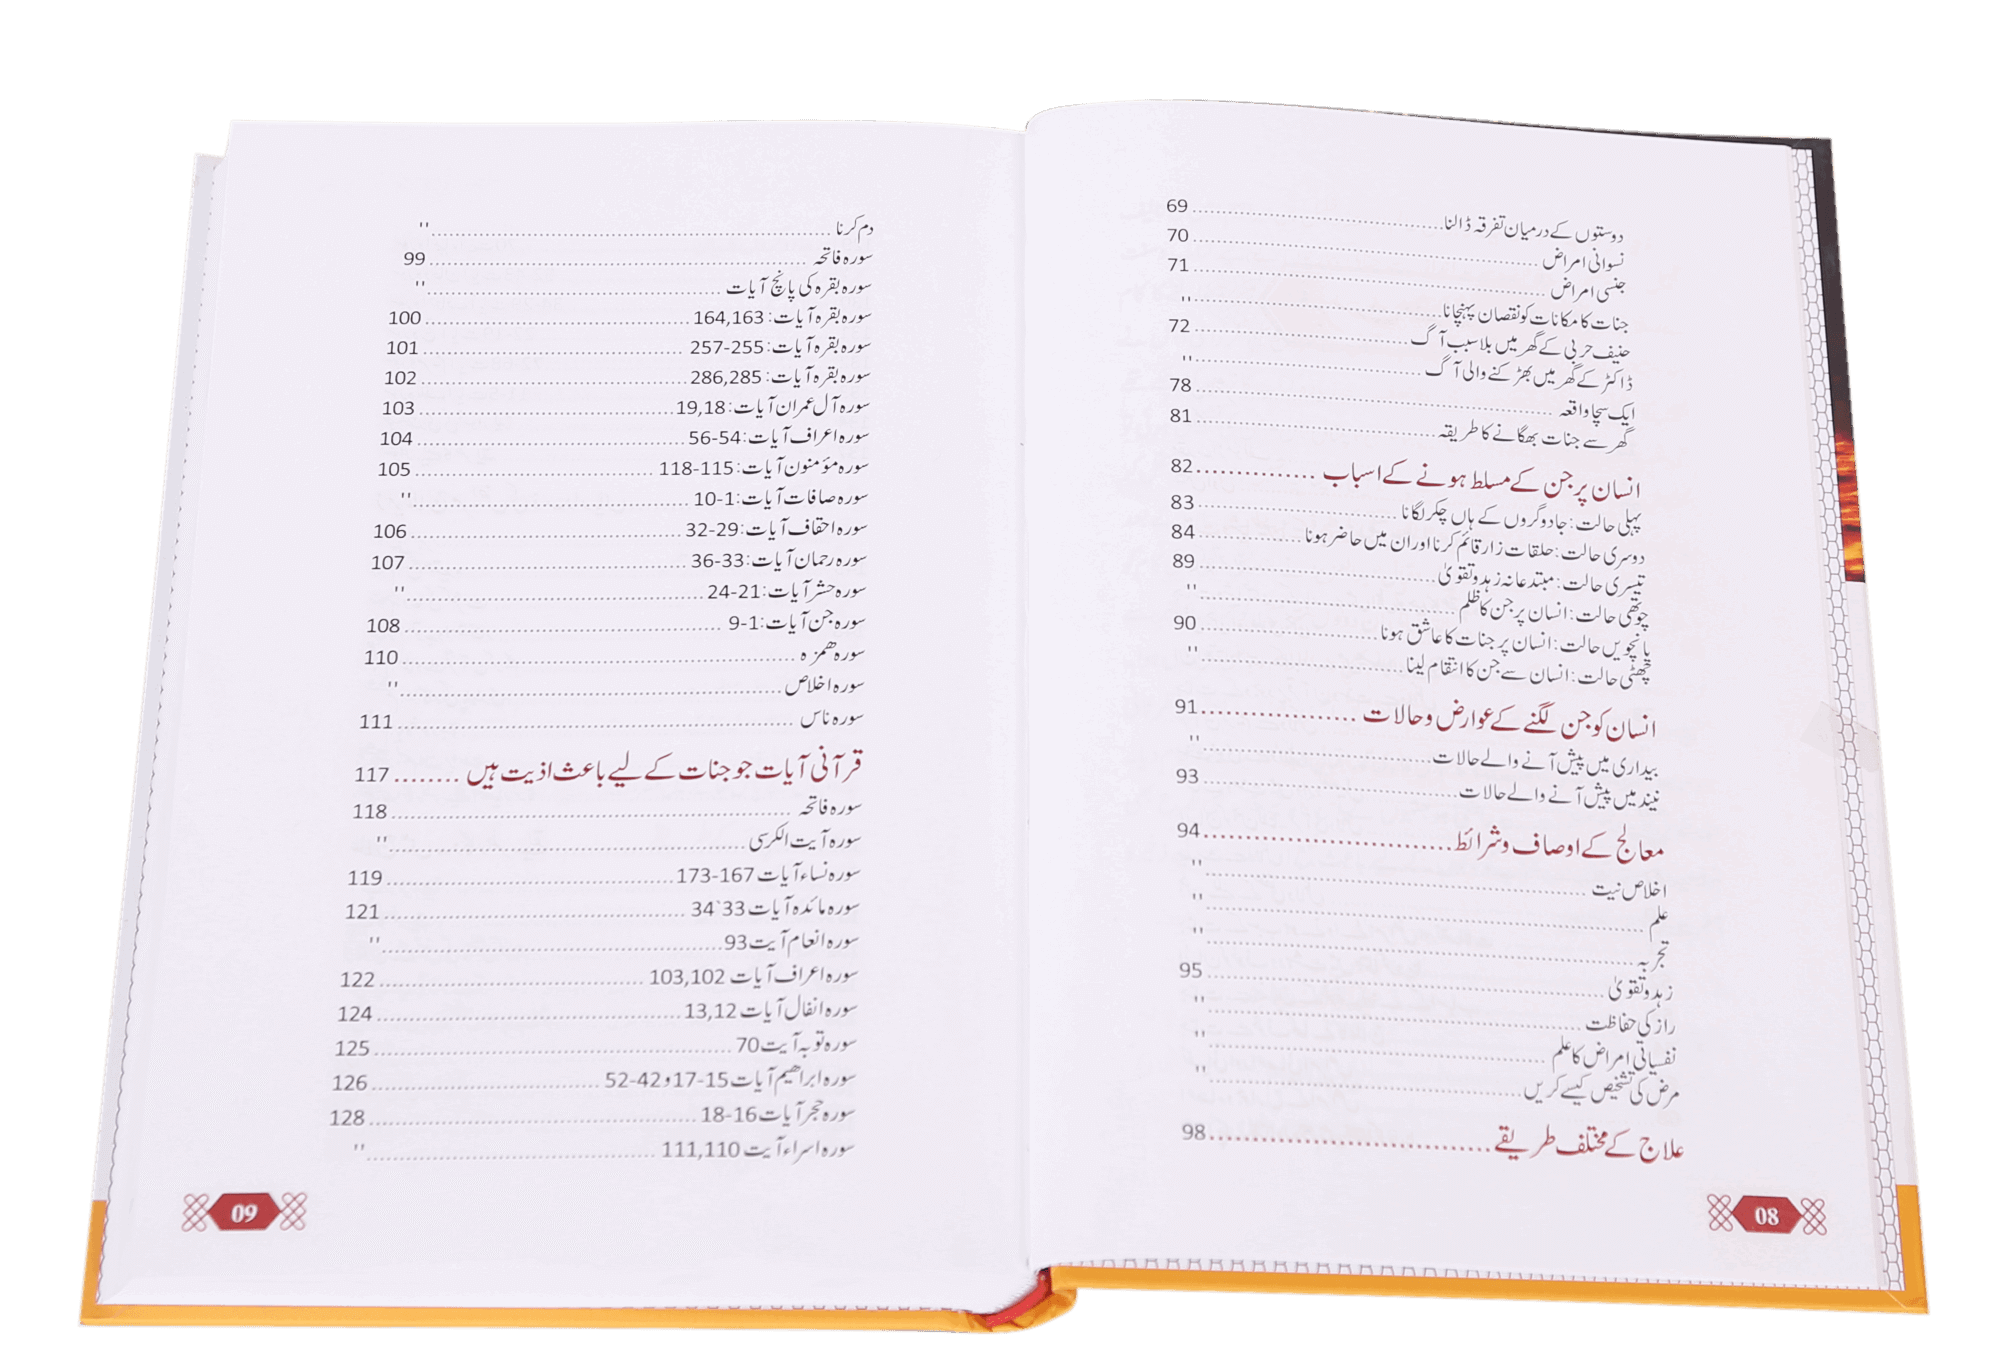 دوستوں کے درمیان تفرقہ ڈالنا ........ 69
نسوانی امراض ........ 70
جنسی امراض ........ 71
جنات کا مکانات کو نقصان پہنچانا ........ "
حنیف حربی کے گھر میں بلا سبب آگ ........ 72
ڈاکٹر کے گھر میں بھڑکنے والی آگ ........ "
ایک سچا واقعہ ........ 78
گھر سے جنات بھگانے کا طریقہ ........ 81
انسان پر جن کے مسلط ہونے کے اسباب ........ 82
پہلی حالت: جادوگروں کے ہاں چکر لگانا ........ 83
دوسری حالت: حلقات زار قائم کرنا اور ان میں حاضر ہونا ........ 84
تیسری حالت: مبتدعانہ زہد و تقویٰ ........ 89
چوتھی حالت: انسان پر جن کا ظلم ........ "
پانچویں حالت: انسان پر جنات کا عاشق ہونا ........ 90
چھٹی حالت: انسان سے جن کا انتقام لینا ........ "
انسان کو جن لگنے کے عوارض و حالات ........ 91
بیداری میں پیش آنے والے حالات ........ "
نیند میں پیش آنے والے حالات ........ 93
معالج کے اوصاف و شرائط ........ 94
اخلاص نیت ........ "
علم ........ "
تجربہ ........ "
زہد و تقویٰ ........ 95
راز کی حفاظت ........ "
نفسیاتی امراض کا علم ........ "
مرض کی تشخیص کیسے کریں ........ "
علاج کے مختلف طریقے ........ 98
08
دم کرنا ........ "
سورہ فاتحہ ........ 99
سورہ بقرہ کی پانچ آیات ........ "
سورہ بقرہ آیات: 164,163 ........ 100
سورہ بقرہ آیات: 255-257 ........ 101
سورہ بقرہ آیات: 286,285 ........ 102
سورہ آل عمران آیات: 19,18 ........ 103
سورہ اعراف آیات: 54-56 ........ 104
سورہ مؤمنون آیات: 115-118 ........ 105
سورہ صافات آیات: 1-10 ........ "
سورہ احقاف آیات: 29-32 ........ 106
سورہ رحمان آیات: 33-36 ........ 107
سورہ حشر آیات: 21-24 ........ "
سورہ جن آیات: 1-9 ........ 108
سورہ ھمزہ ........ 110
سورہ اخلاص ........ "
سورہ ناس ........ 111
قرآنی آیات جو جنات کے لیے باعث اذیت ہیں ........ 117
سورہ فاتحہ ........ 118
سورہ آیت الکرسی ........ "
سورہ نساء آیات 167-173 ........ 119
سورہ مائدہ آیات 33`34 ........ 121
سورہ انعام آیت 93 ........ "
سورہ اعراف آیات 103,102 ........ 122
سورہ انفال آیات 13,12 ........ 124
سورہ توبہ آیت 70 ........ 125
سورہ ابراھیم آیات 15-17 و 42-52 ........ 126
سورہ حجر آیات 16-18 ........ 128
سورہ اسراء آیت 111,110 ........ "
09